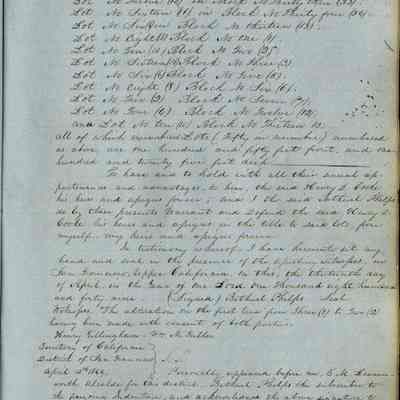 Lot No Sixteen (16) in Block No Thirty four (34)
Lot No Block No Thirteen (13)
Lot No Eight Block No One (1)
Lot No Ten (10) Block No Two (2)
Lot No Sixteen (16) Block No Three (3)
Lot No Six (6) Block No Five (5)
Lot No Eight (8) Block No Six (6)
Lot No Two (2) Block No Seven (7)
Lot No Block No Twelve (12)
and Lot No Ten (10) Block No Thirteen 13
All of which Lots (Fifty in number) numbered
as above are one hundred and fifty feet front, and one
hundred and twenty five feet deep
To have and to hold with all their usual ap-
purtenances and advantages to him, the said Henry D. Cooke
his heirs and assigns forever; and I the said Bethuel Phelps
do by these presents Warrant and Defend the said Henry D.
Cooke his heirs and assigns in the title to said lots, from
myself, my heirs and assigns forever
In testimony whereof I have hereunto set my
hand and seal in the presence of the witnesses, in
San Francisco, Upper California, on this, the thirteenth day
of April, in the Year of our Lord One Thousand eight hundred
and forty nine. (Signed) Bethuel Phelps Seal
Witnesses The alteration on the first line from Three (3) to Two (2)
having been made with consent of both parties.
Henry Gillingham. Wm M.
Territory of California
District of San Francisco L.S.
April Personally appeared before me, E. M.
Alcalde for the district, Bethuel Phelps the subscriber to
the foregoing Indenture, and acknowledged the above signature to